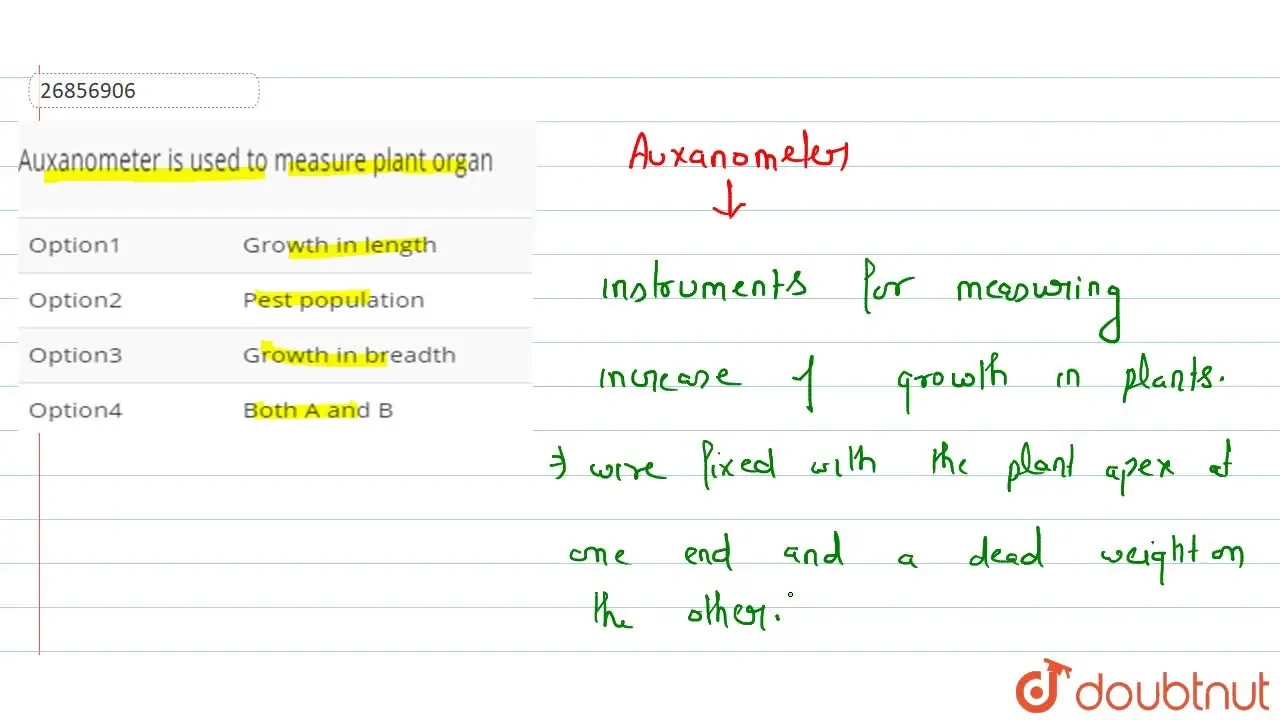 26856906
Auxanometer is used to measure plant organ
Option1 Growth in length
Option2 Pest population
Option3 Growth in breadth
Option4 Both A and B
Auxanometers
instruments for measuring
increase of growth in plants.
⇒ wire fixed with the plant apex at
one end and a dead weight on
the other.
doubtnut